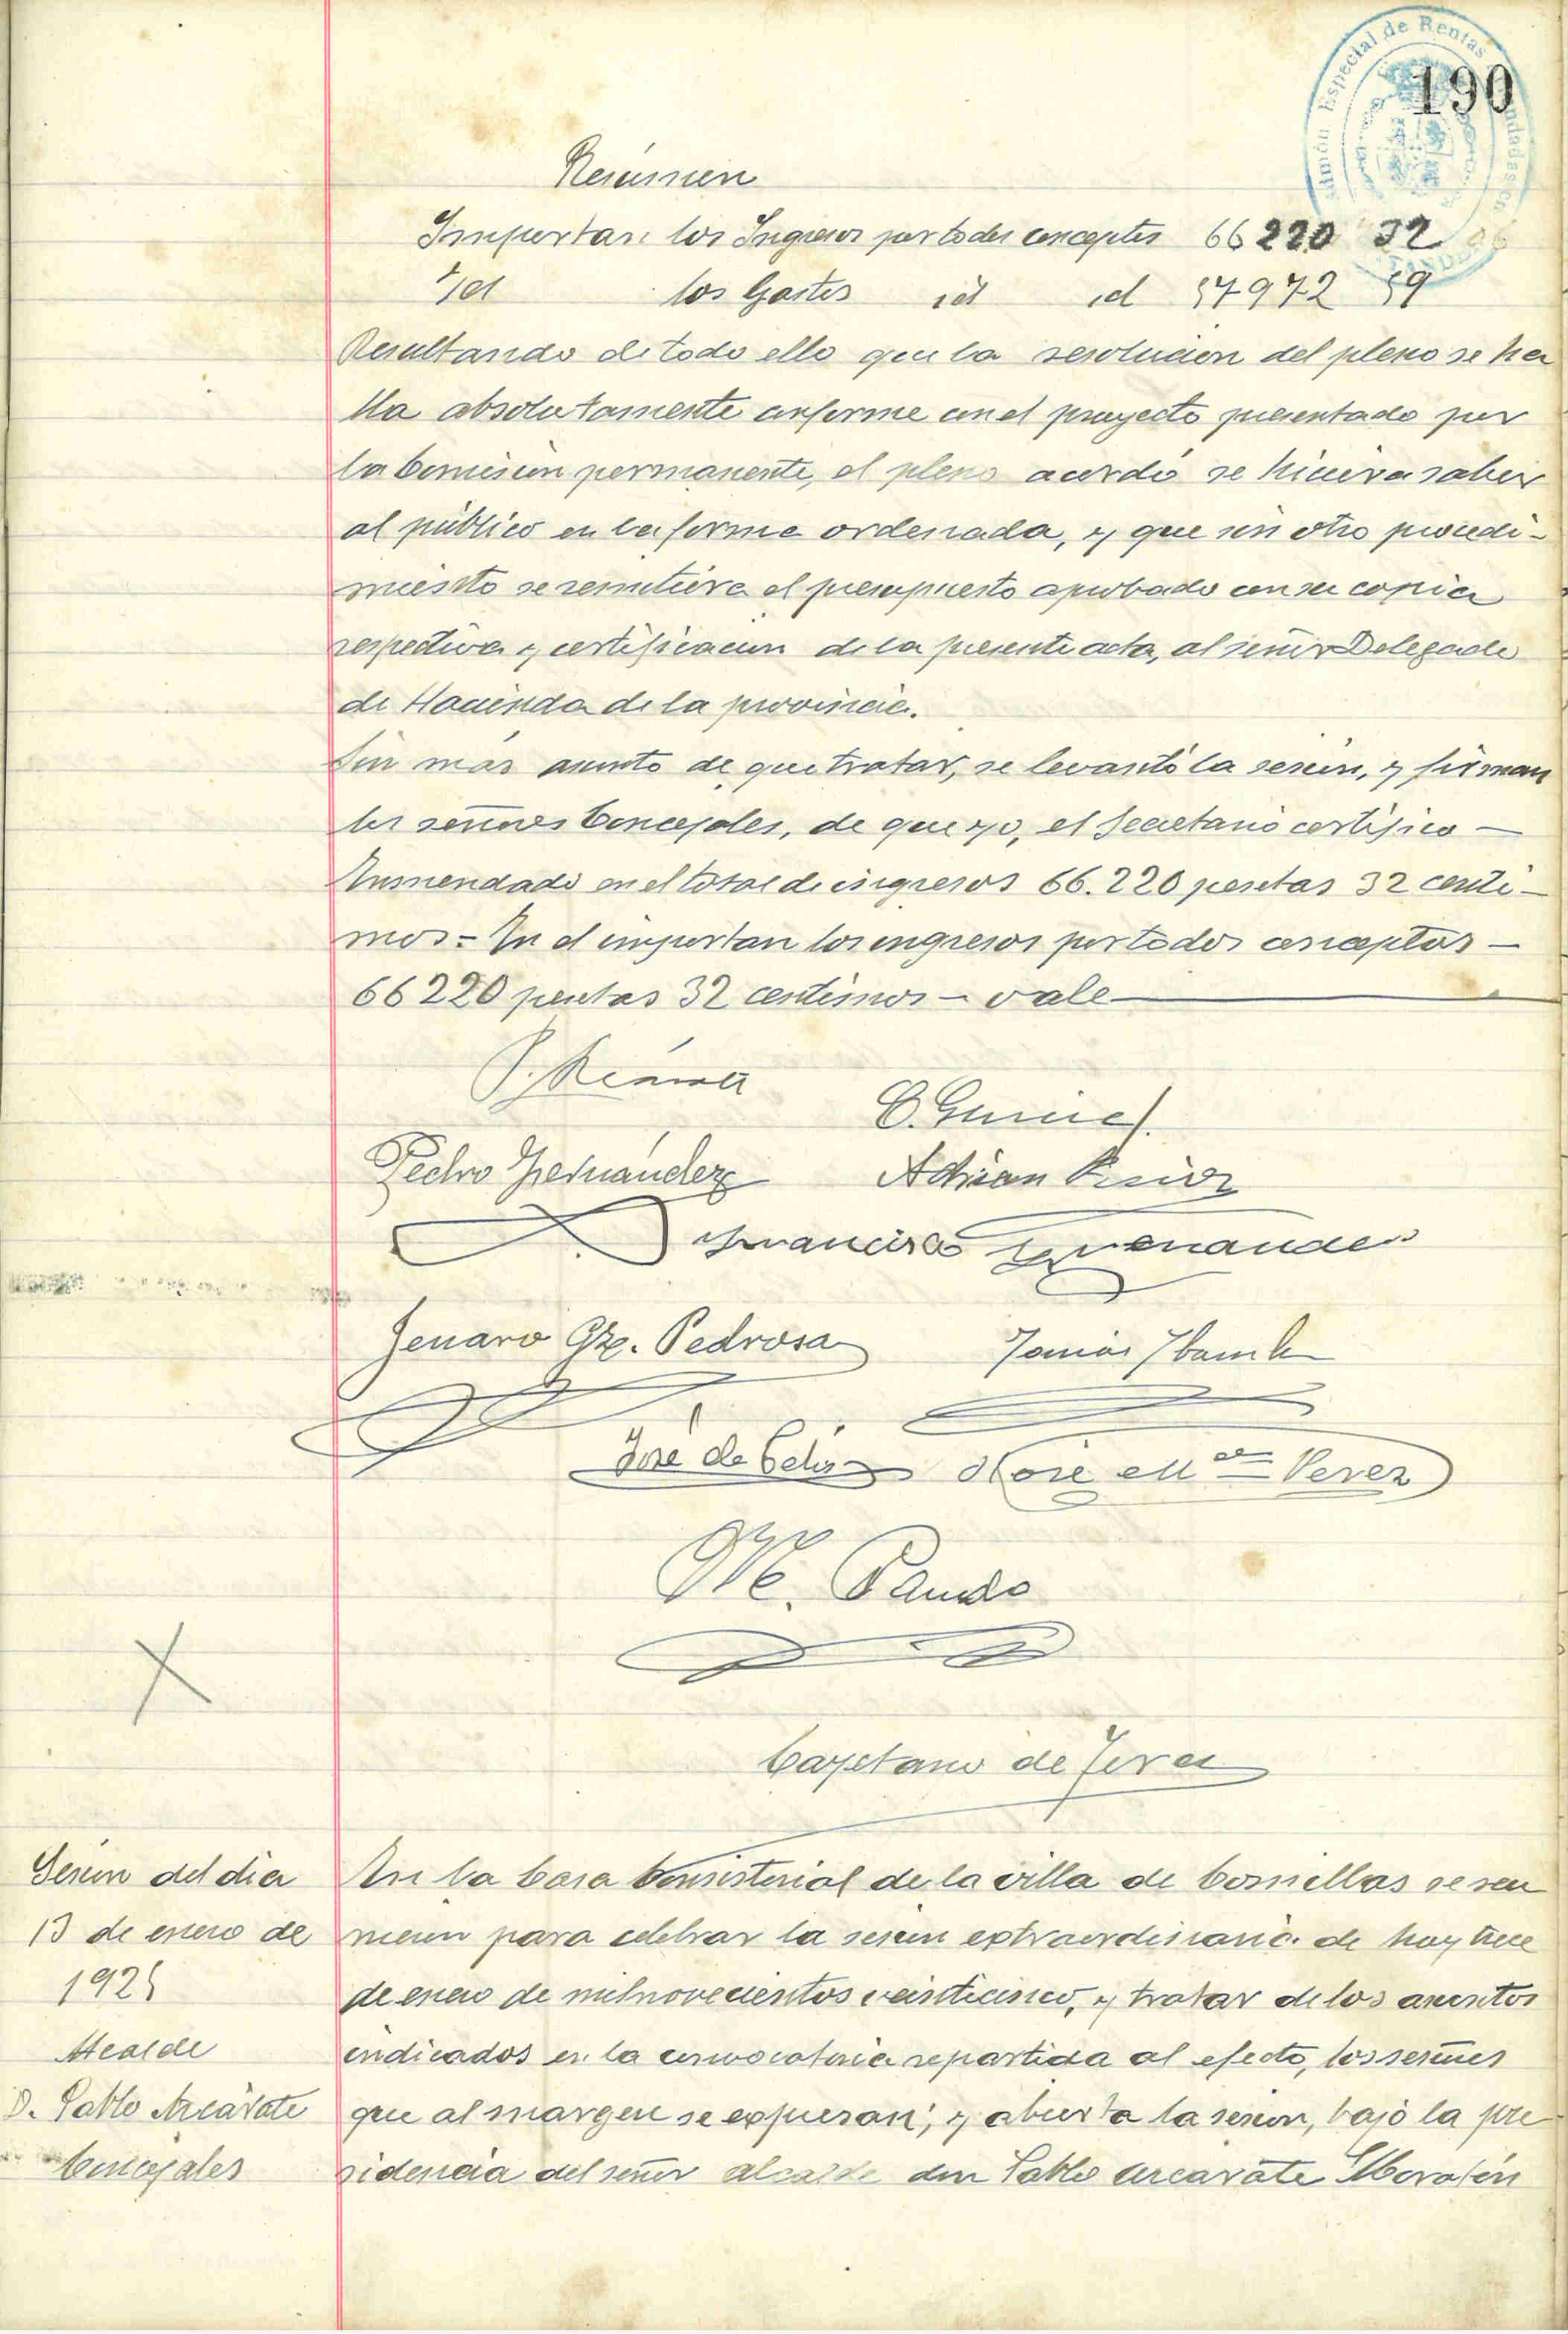 190
Resúmen
Importan los Ingresos por todos conceptos 66220 32
Id los Gastos id id 57972 59
Resultando de todo ello que la resolucion del pleno se ha
lla absolutamente conforme con el proyecto presentado por
la Comision permanente, el pleno acordó se hiciera saber
al público en la forma ordenada, y que sin otro procedi-
miento se remitiera el presupuesto aprobado con su copia
respectiva y certificacion de la presente acta, al señor Delegado
de Hacienda de la provincia.
Sin más asunto de que tratar, se levantó la sesion, y firman
los señores Concejales, de que yo, el Secretario certifico —
Enmendado en el total de ingresos 66.220 pesetas 32 centi-
mos = En el importan los ingresos por todos conceptos —
66220 pesetas 32 centimos — vale
Pedro Hernández Adrian
Francisco Fernandez
Jenaro Gze. Pedrosa Tomás
José de Celis José Mª Perez
Pando
Cayetano de
Sesion del dia
13 de enero de
1925
Alcalde
D. Pablo Arcárate
Concejales
En la Casa Consistorial de la villa de Comillas se reu
nieron para celebrar la sesion extraordinaria de hoy trece
de enero de mil novecientos veinticinco, y tratar de los asuntos
indicados en la convocatoria repartida al efecto, los señores
que al margen se expresan, y abierta la sesion, bajo la pre
sidencia del señor alcalde don Pablo Arcarate